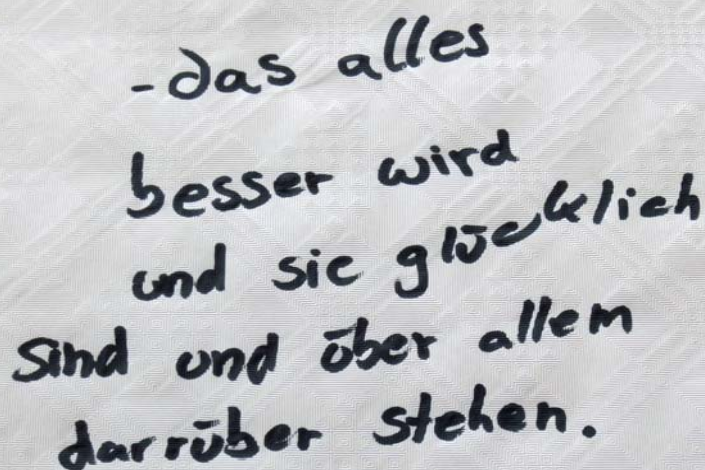 -das alles
besser wird
und sie glücklich
sind und über allem
darrüber stehen.